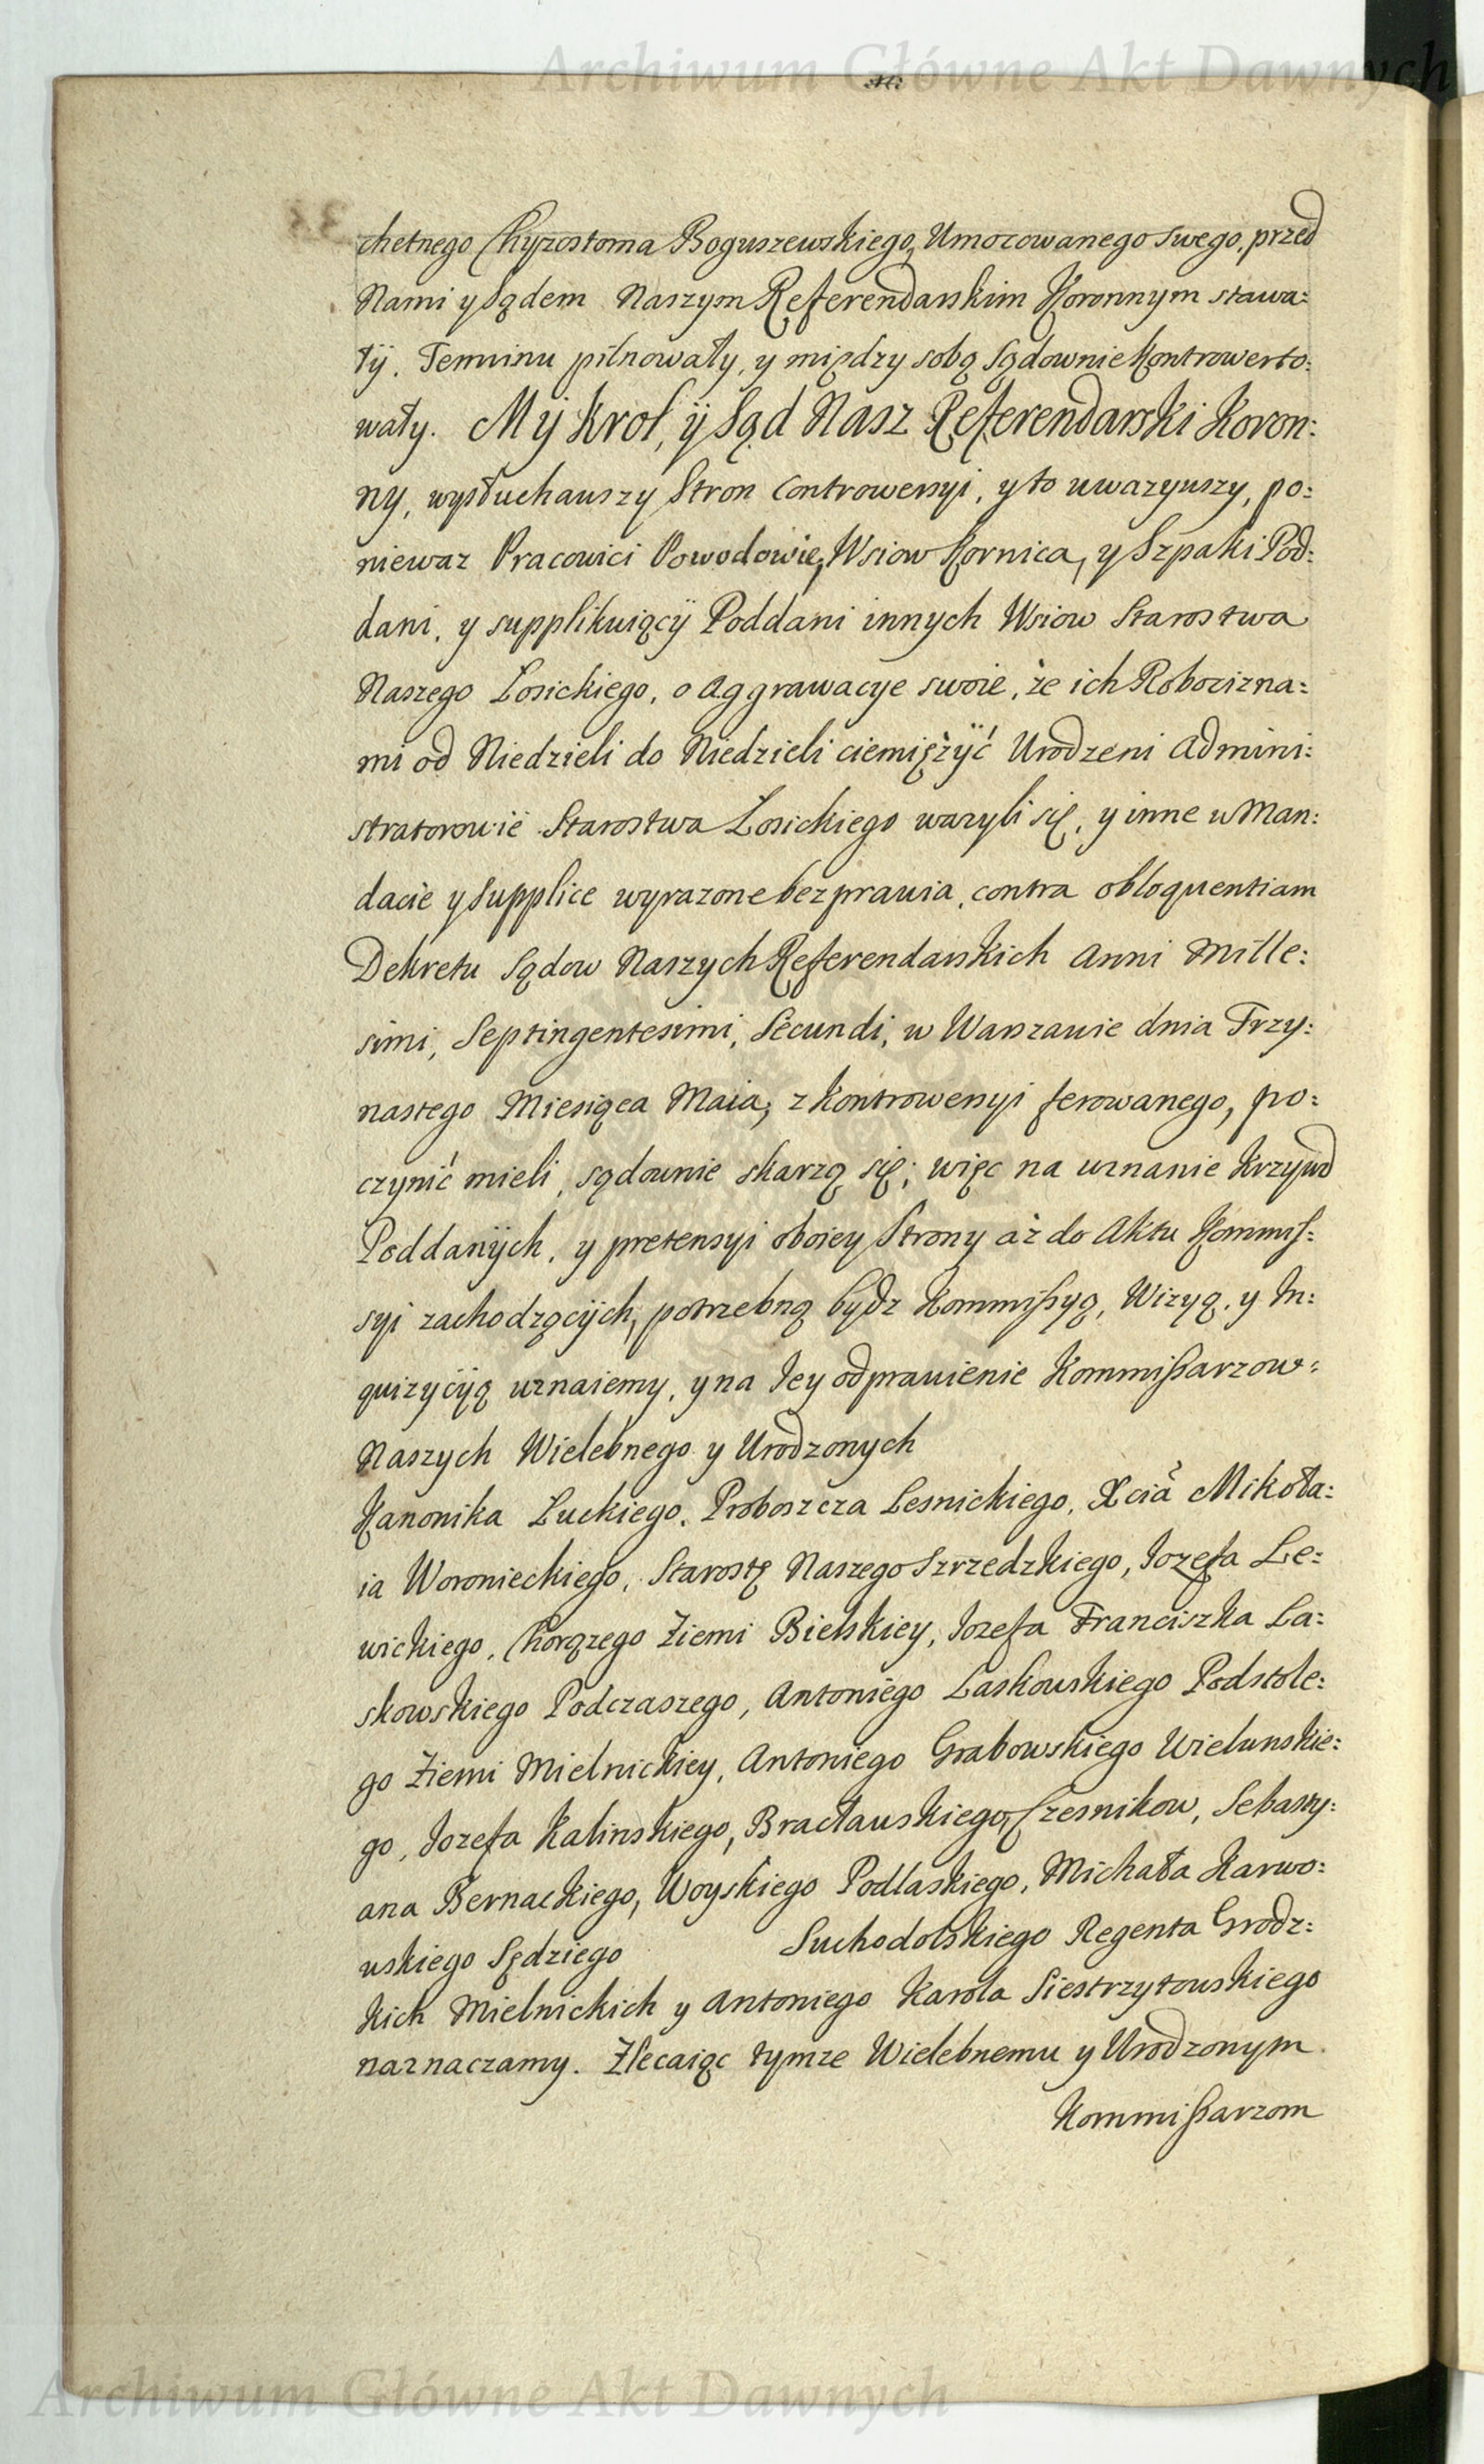 Archiwum Główne Akt Dawnych
chetnego Chyzostoma Boguszewskiego, Umocowanego swego, przed
Nami y Sądem Naszym Referendarskim Koronnym stawa:
łÿ. Terminu pilnowały, y między sobą Sądownie kontrowerto:
wały. Mÿ Krol, ÿ Sąd Nasz Referendarski Koron:
ny, wysłuchauszy Stron Controwersyi, y to uwazyuszy, po:
niewaz Pracowici Powodowie, Wsiow Kornica, y Szpaki Pod:
dani, y supplikuiącÿ Poddani innych Wsiow Starostwa
Naszego Losickiego, o Aggrawacye swoie, że ich Robocizna:
mi od Niedzieli do Niedzieli ciemiężÿć Urodzeni Admini:
stratorowie Starostwa Losickiego wazyli się, y inne w Man:
dacie y Supplice wyrazone bezprawia, contra obloquentiam
Dekretu Sądow Naszych Referendarskich Anni Mille:
simi, Septingentesimi, Secundi, w Warszawie dnia Trzy:
nastego Miesiąca Maia, z kontrowersyi ferowanego, po:
czynić mieli, sądownie skarzą się; więc na uznanie Krzywd
Poddanÿch, y pretensyi oboiey Strony aż do Aktu Kommis:
syi zachodzącÿch, potrzebną bydz Kommissyą, Wizyą, y In:
quizycÿą uznaiemy, y na Iey odprawienie Kommissarzow:
Naszych Wielebnego y Urodzonych
Kanonika Luckiego, Proboszcza Lesnickiego, Xcia Mikoła:
ia Woronieckiego, Starostę Naszego Szrzedzkiego, Iozefa Le:
wickiego, Chorązego Ziemi Bielskiey, Iozefa Franciszka La:
skowskiego Podczaszego, Antoniego Laskowskiego Podstole:
go Ziemi Mielnickiey, Antoniego Grabowskiego Wielunskie:
go, Iozefa Kalinskiego, Bracławskiego, Czesnikow, Sebasty:
ana Bernackiego, Woyskiego Podlaskiego, Michała Karwo:
wskiego Sędziego Suchodolskiego Regenta Grodz:
kich Mielnickich y Antoniego Karola Siestrzytowskiego
naznaczamy. Zlecaiąc tymze Wielebnemu y Urodzonym
Kommissarzom
Archiwum Główne Akt Dawnych